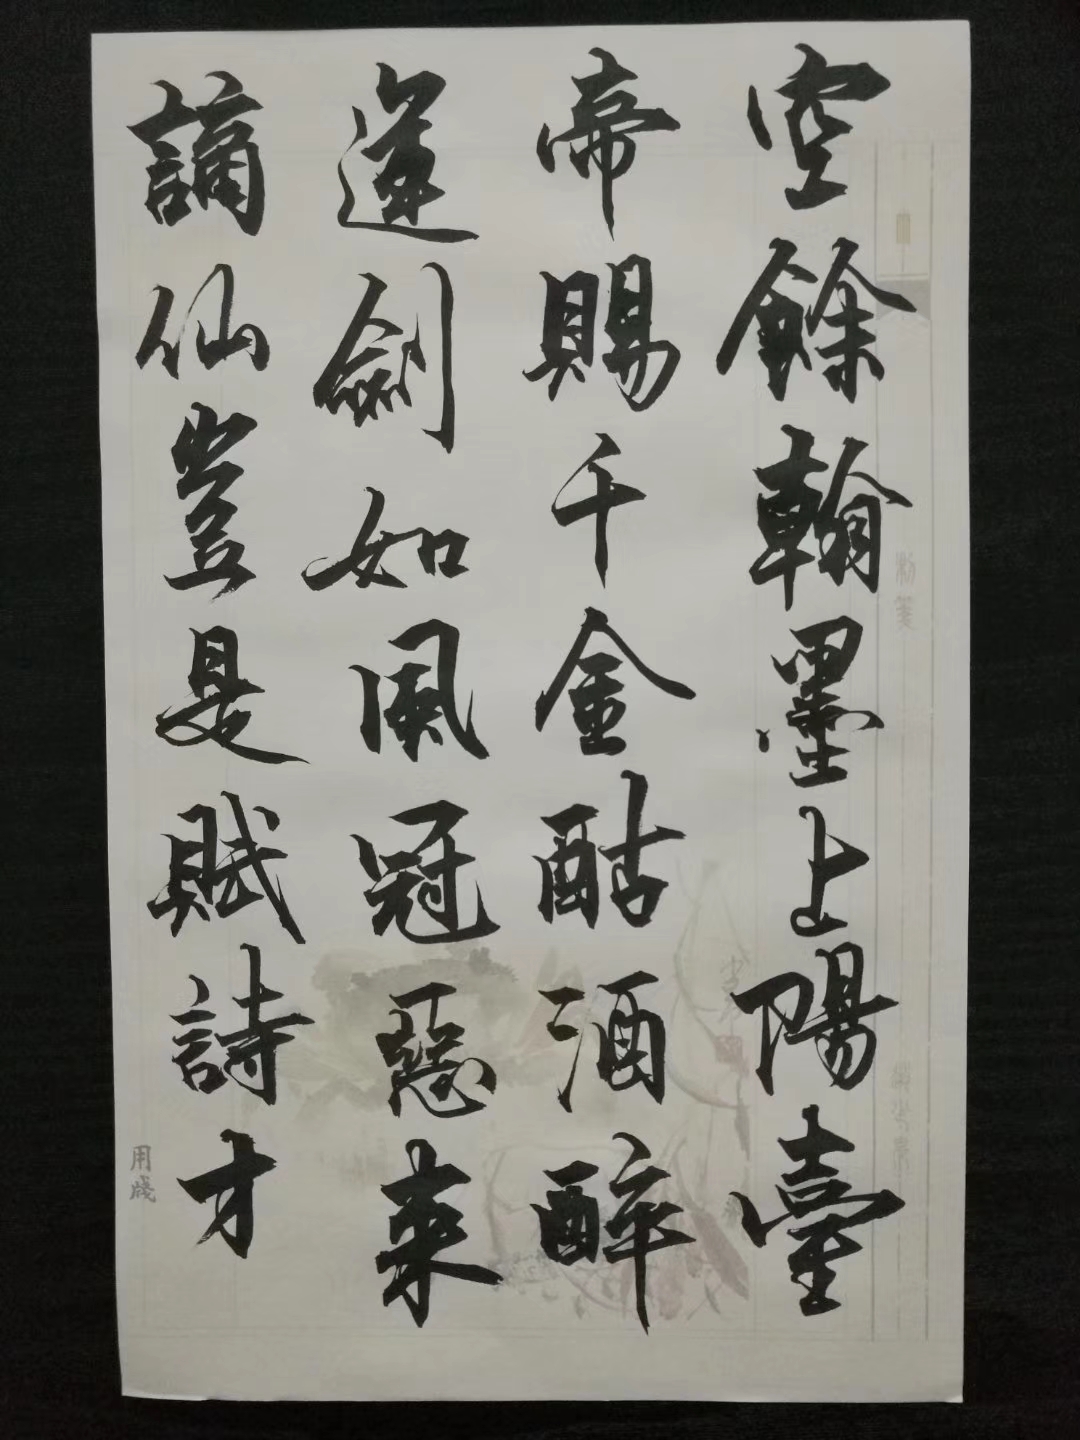 空餘翰墨上陽臺
帝賜千金酤酒醉
運劍如風冠惡來
謫仙豈是賦詩才
用牋